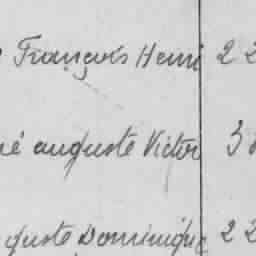 François Henri 22
né auguste Victor 3
guste Dominique 22